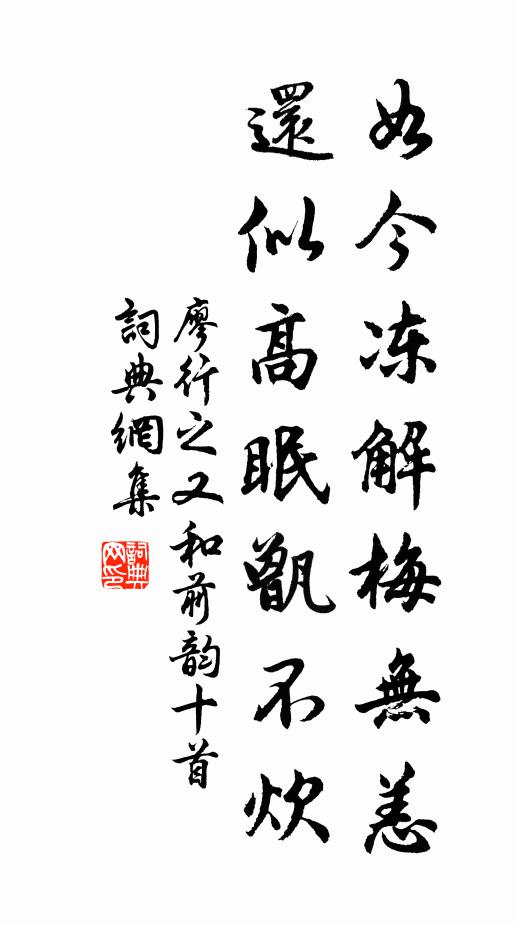 如今冻解梅無恙
還似高眠甑不炊
廖行之又和前韵十首
詞典網集
詞典网印